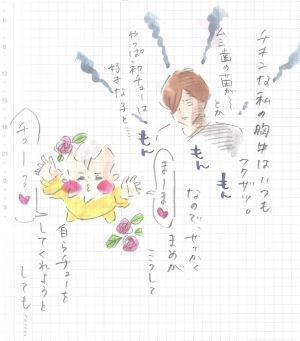 チキンな私の胸中はいつも
フクザツ。
ムシ歯の菌が〜とか
やっぱ初チューは
好きな子と……
もん
もん
もん
もん
なので、せっかく
まめが
こうして
まーま♥
自らチューを
してくれようと
しても……
チューっ♥